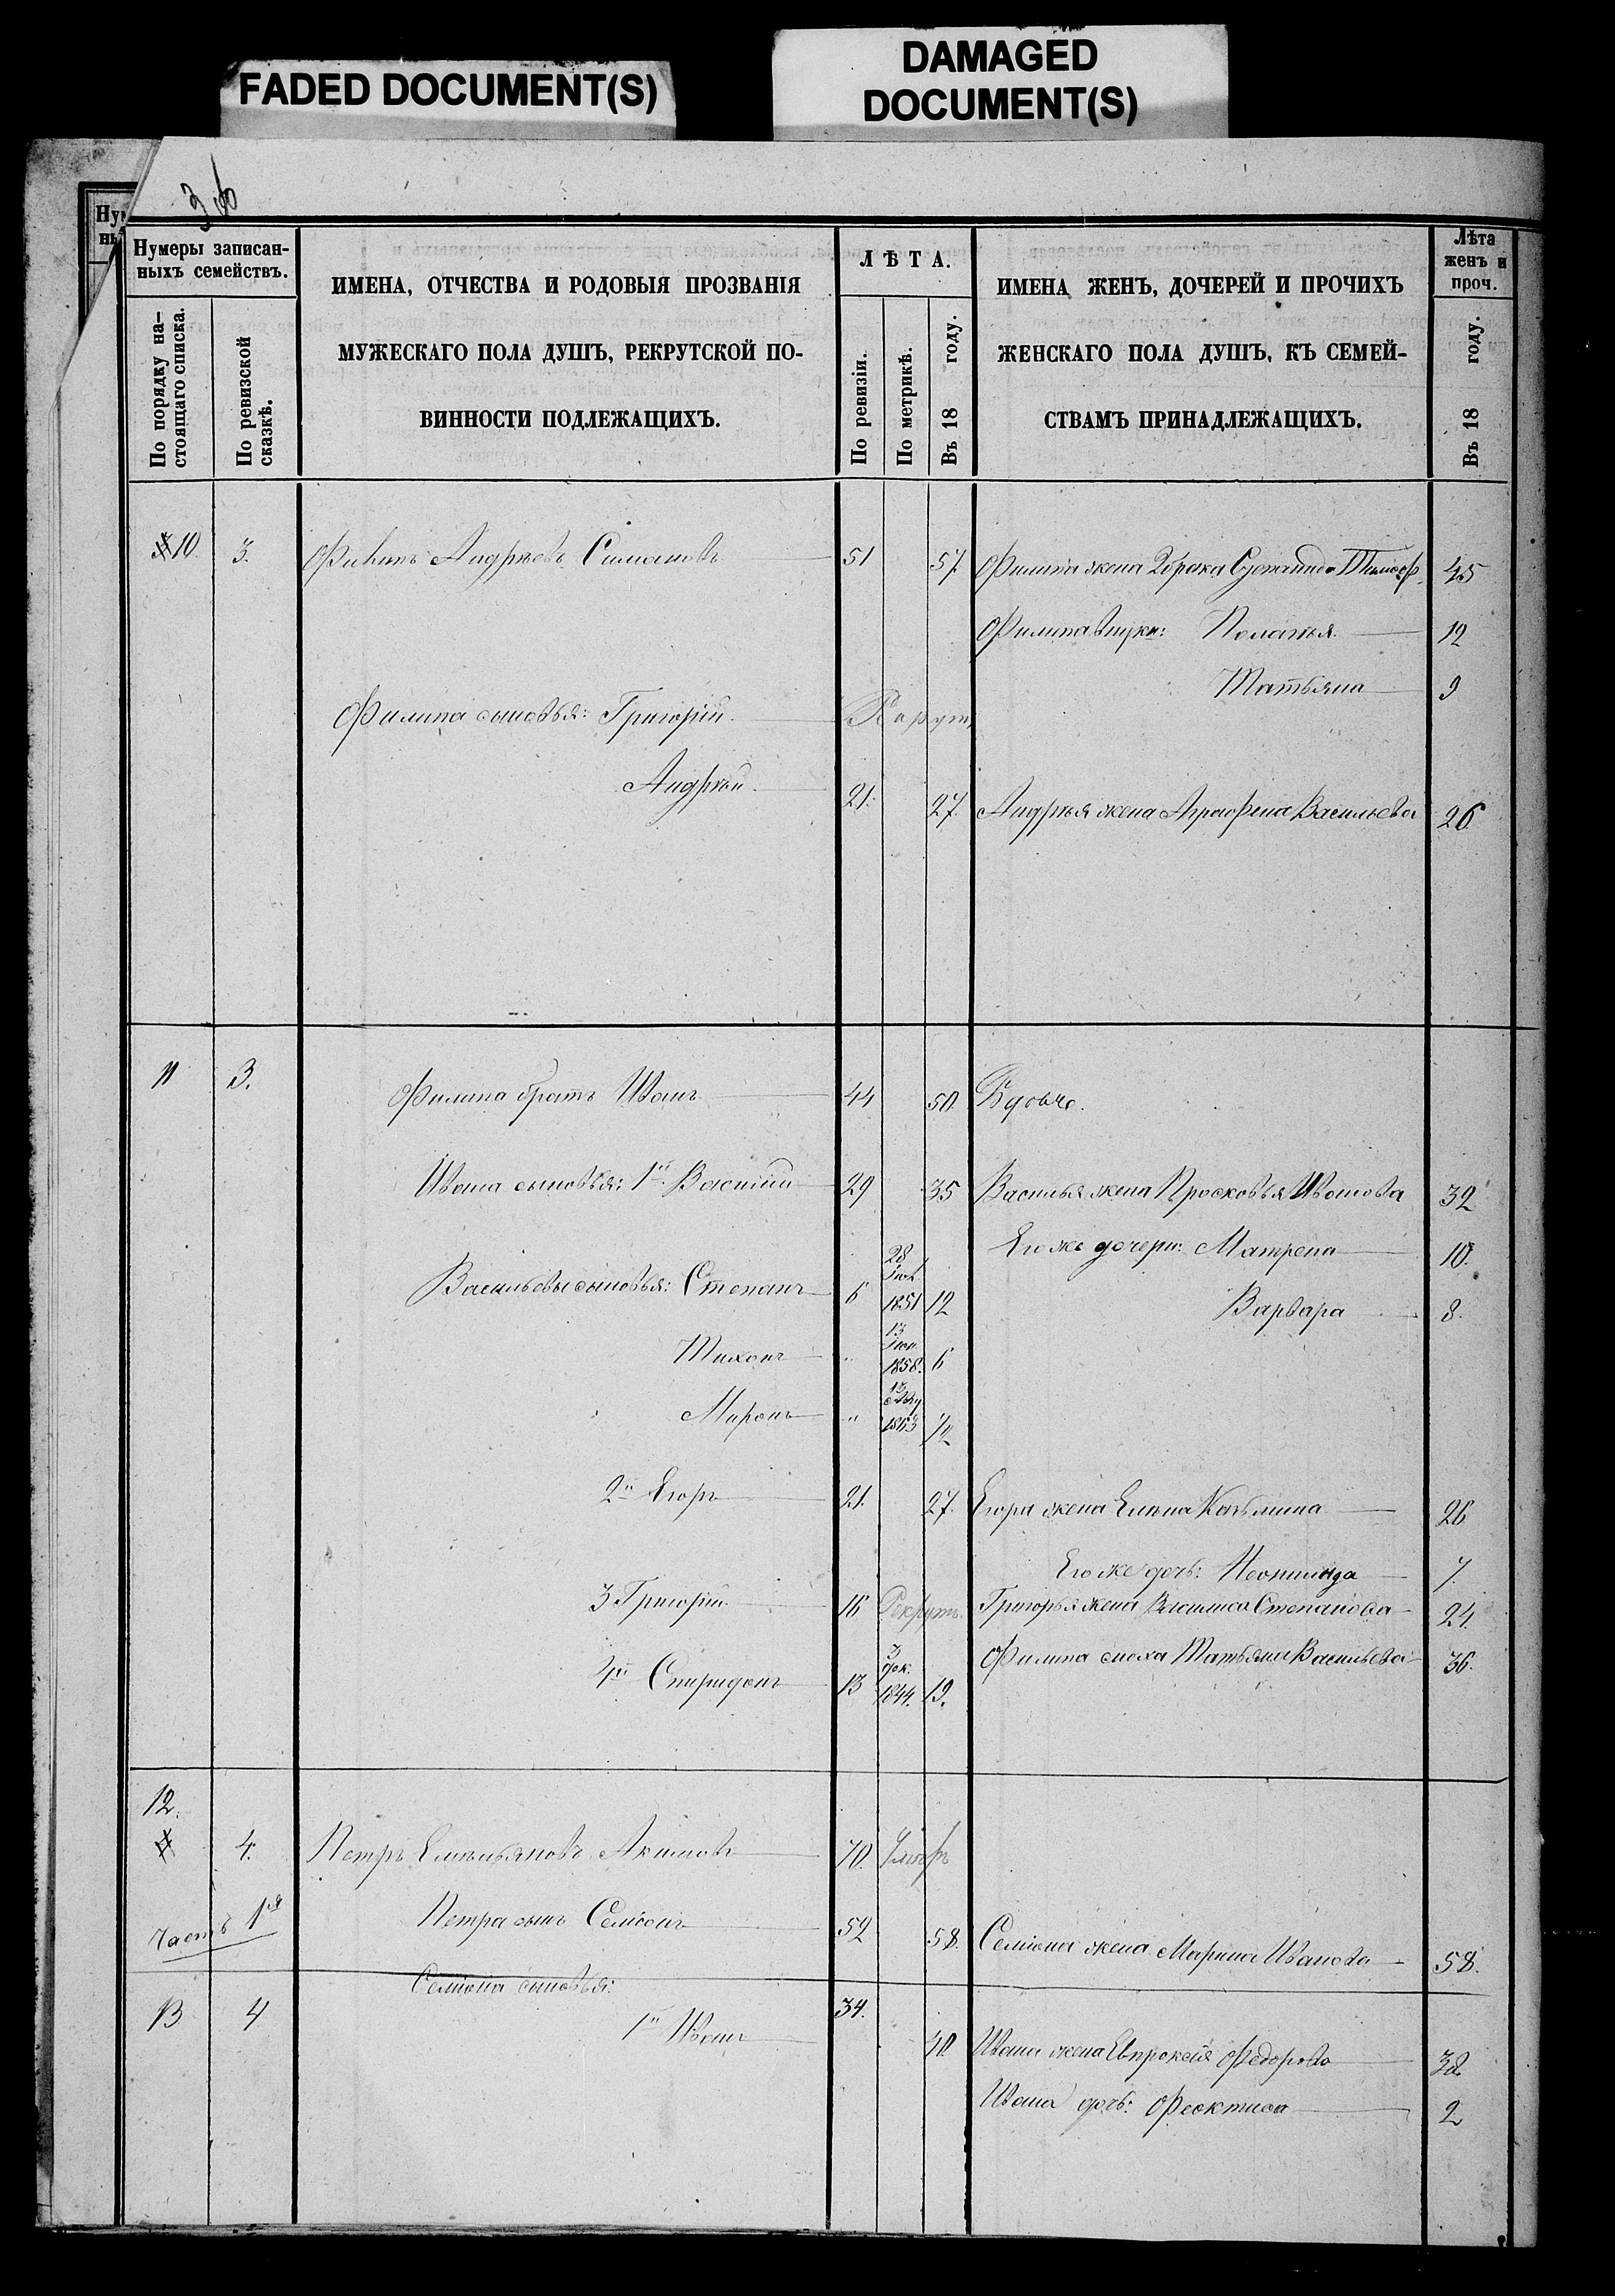 FADED DOCUMENT(S)
DAMAGED
DOCUMENT(S)
Нумеры записан-
ныхъ семействъ.
По порядку на-
стоящаго списка.
По ревизской
сказкѣ.
ИМЕНА, ОТЧЕСТВА И РОДОВЫЯ ПРОЗВАНІЯ
МУЖЕСКАГО ПОЛА ДУШЪ, РЕКРУТСКОЙ ПО-
ВИННОСТИ ПОДЛЕЖАЩИХЪ.
ЛѢТА.
По ревизіи.
По метрикѣ.
Въ 18 году.
ИМЕНА ЖЕНЪ, ДОЧЕРЕЙ И ПРОЧИХЪ
ЖЕНСКАГО ПОЛА ДУШЪ, КЪ СЕМЕЙ-
СТВАМЪ ПРИНАДЛЕЖАЩИХЪ.
Лѣта
женъ и
проч.
Въ 18 году.
10. 3. Филипъ Андрѣевъ 51 57 Филипа жена 2 брака 45
Филипа внуки: Поланья 12
Татьяна 9
Филипа сыновья: Григорій
Андрѣй 21 27 Андрѣя жена Аграфена Васильева 26
11 3. Филипа братъ Иванъ 44 50
Ивана сыновья: 1й Василій 29 35 Василья жена Просковья Иванова 32
Его же дочери: Матрена 10.
Васильевы сыновья: Степанъ 6 28 1851 12 Варвара 8.
Тихонъ " 13 Iюн. 1858. 6
Миронъ " 1863 1/2
2й Егоръ 21. 27. Егора жена Елена Козьмина 26
Его же дочь: 7.
3 Григорій 16 Рекрутъ. Григорья жена Василиса Степанова 24
4й Спиридонъ 13 Дек. 1844. 19. Филипа сноха Татьяна Васильева 36.
12.
4. Петръ Емельяновъ Акимовъ 70. Умеръ
Часть 1я Петра сынъ Семіонъ 52 58. Семіона жена Марина Иванова 58.
Семіона сыновья:
13 4 1й Иванъ 34. 40 Ивана жена Евпроксия Федорова 38.
Ивана дочь: Феоктиса 2